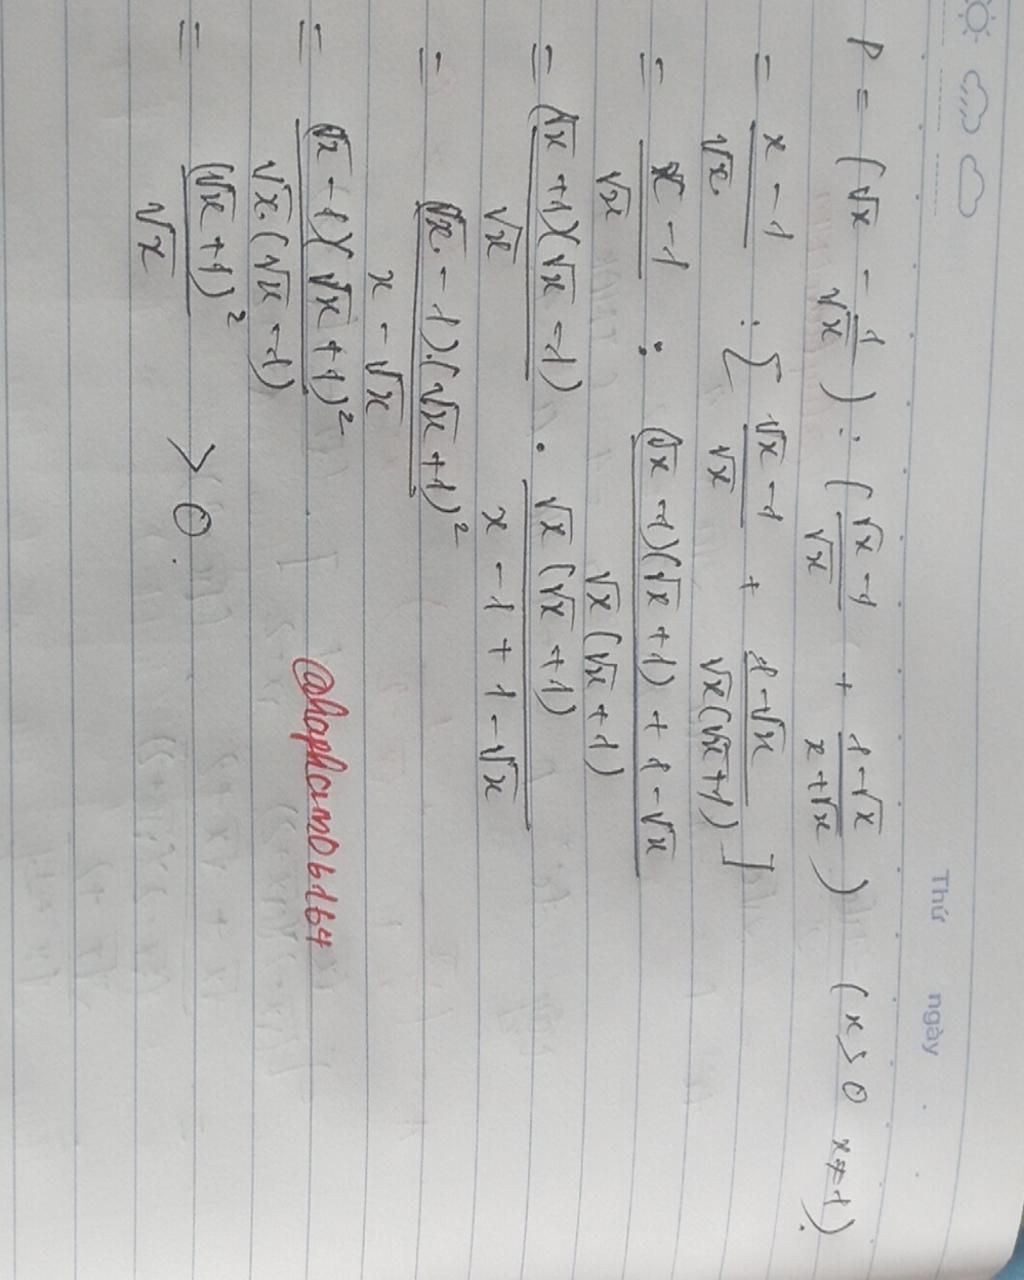 Thứ ngày
P = (√x - 1/√x) : ((√x - 1)/√x + (1 - √x)/(x + √x)) (x > 0 x ≠ 1).
= (x - 1)/√x : [(√x - 1)/√x + (1 - √x)/(√x(√x + 1))]
= (x - 1)/√x : ((√x - 1)(√x + 1) + 1 - √x)/(√x(√x + 1))
= ((√x + 1)(√x - 1))/√x . (√x(√x + 1))/(x - 1 + 1 - √x)
= ((√x - 1).(√x + 1)²)/(x - √x)
= ((√x - 1)(√x + 1)²)/(√x.(√x - 1))
= (√x + 1)²/√x > 0.
@hapham06164